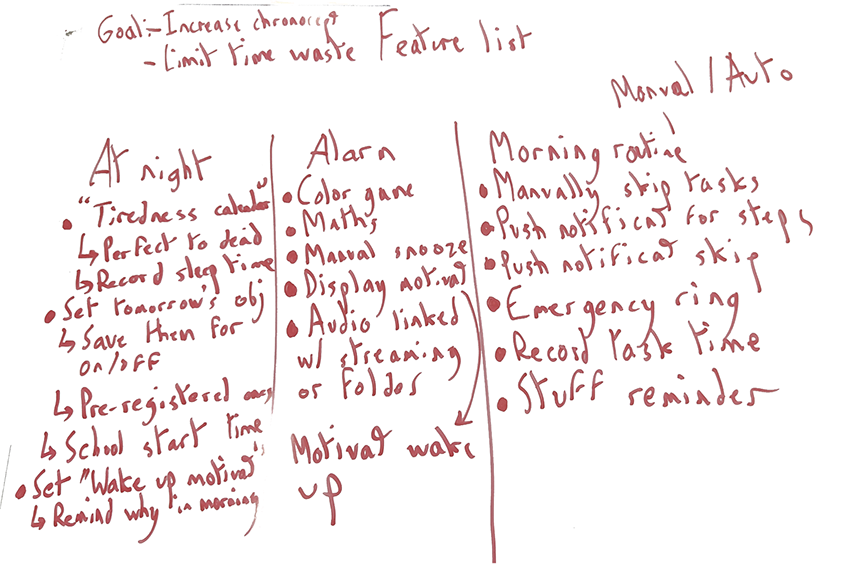 Goal:- Increase chronocept
- Limit time waste
Feature list
Manual / Auto
At night
• "Tiredness calculator"
↳ Perfect to dead
↳ Record sleep time
• Set tomorrow's obj
↳ Save them for
on/off
↳ Pre-registered ones
↳ School start time
• Set "Wake up motivat"
↳ Remind why in morning
Alarm
• Color game
• Maths
• Manual snooze
• Display motivat
• Audio linked
w/ streaming
or folder
Motivat wake
up
Morning routine
• Manually skip tasks
• Push notificat for steps
• Push notificat skip
• Emergency ring
• Record task time
• Stuff reminder